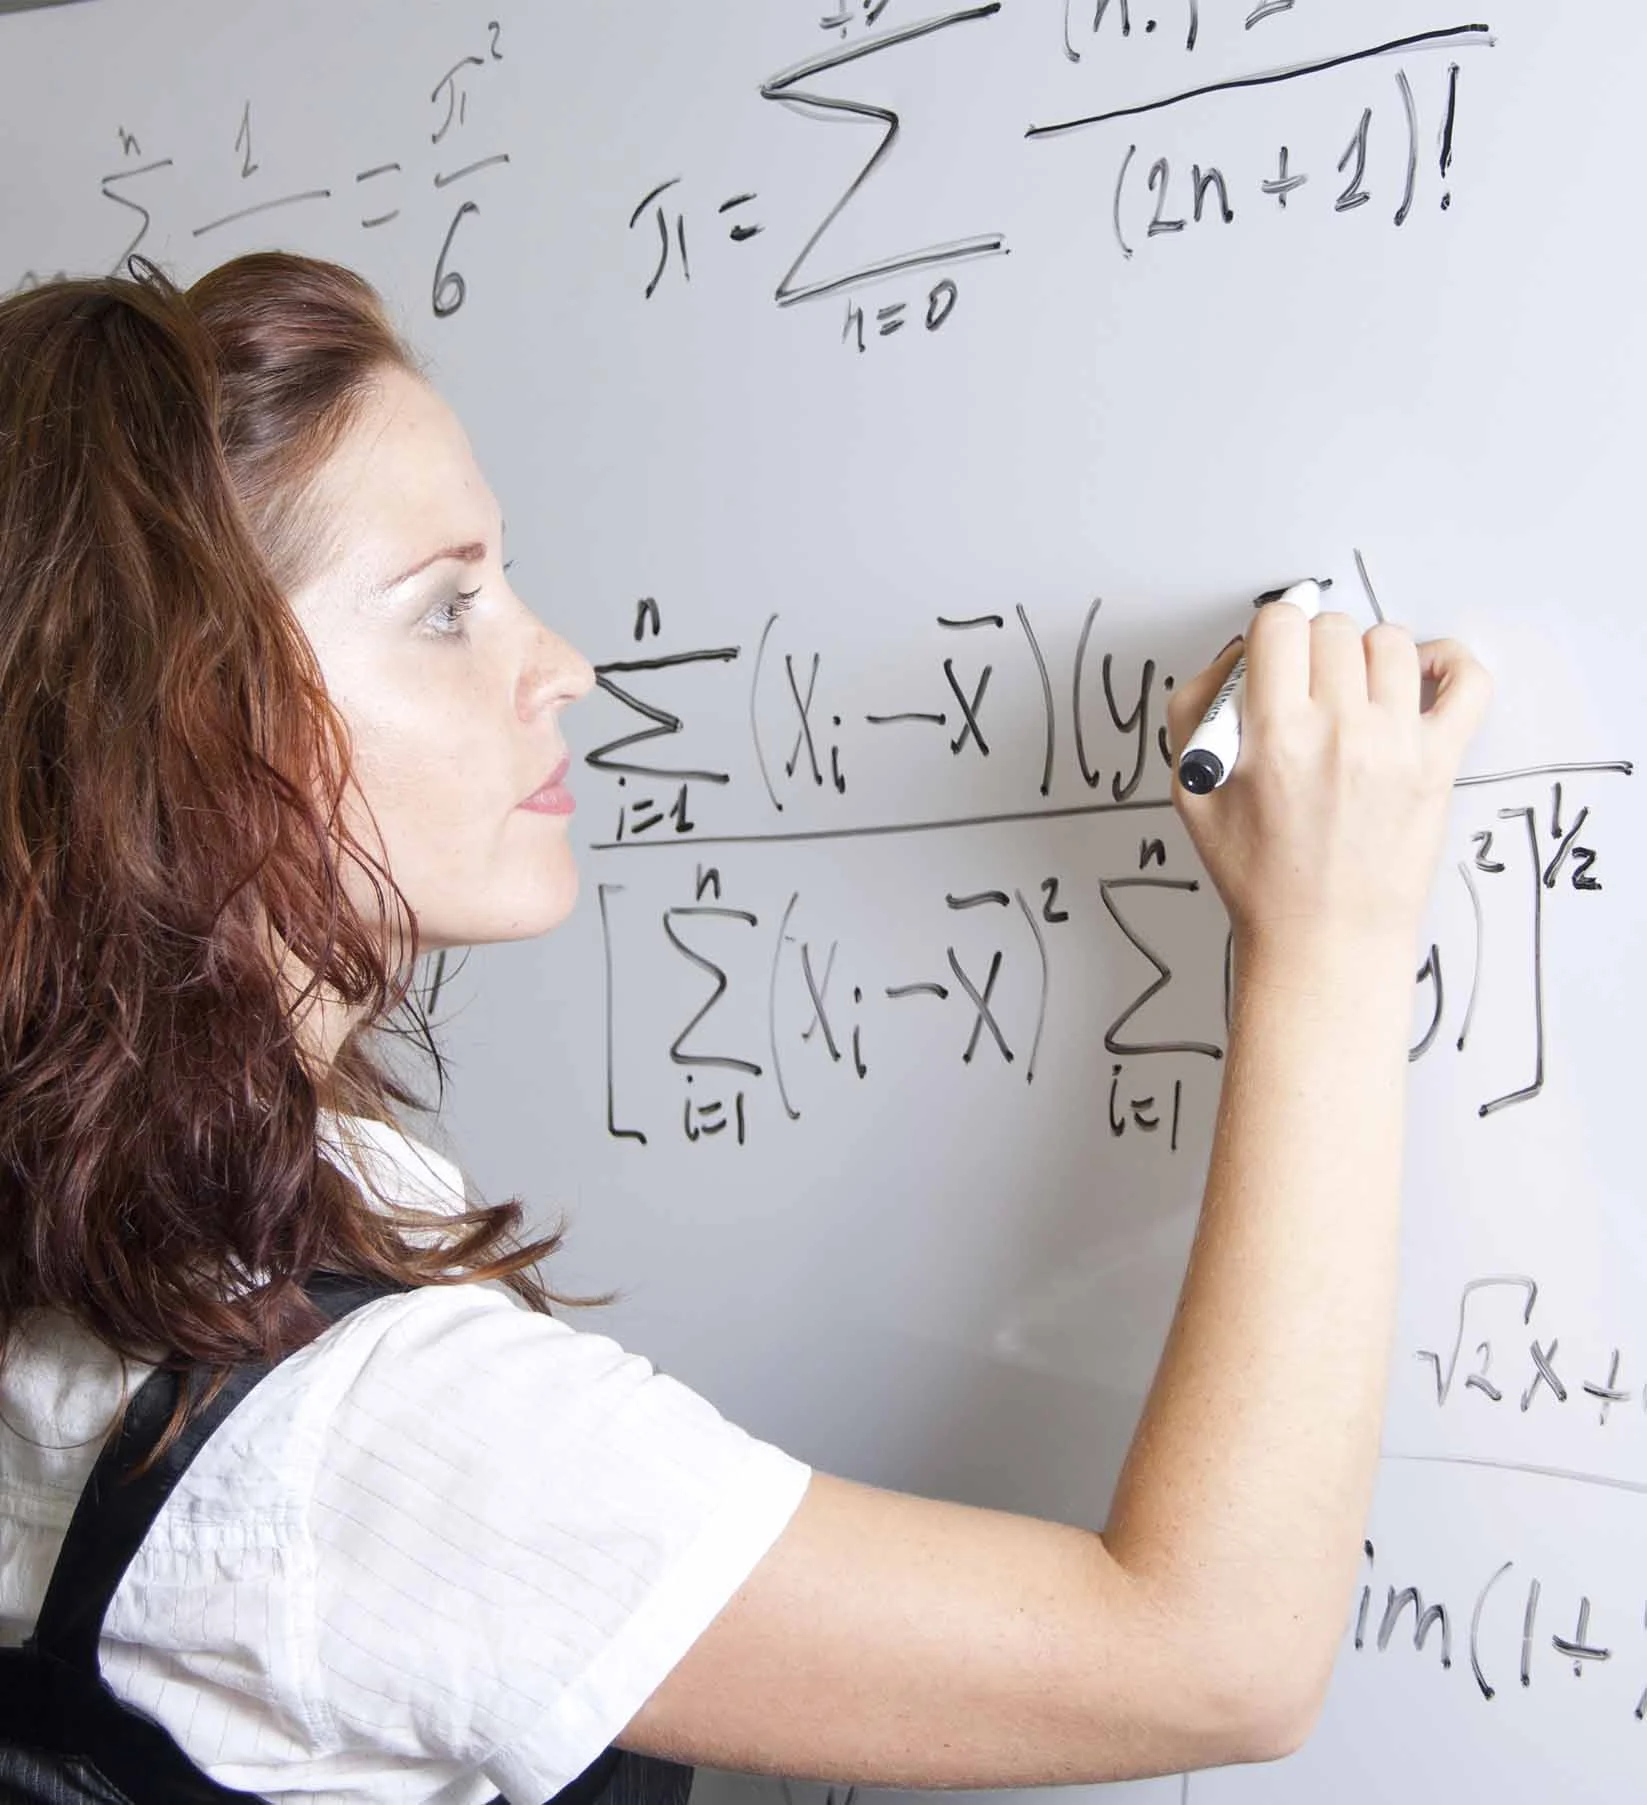 n
∑ 1/ = π²/6
π = ∑ n=0 (n!) / (2n+1)!
n
∑ (xᵢ – x̄)(yᵢ
i=1
[ n ∑ i=1 (xᵢ – x̄)² n ∑ i=1 ( y)² ]^1/2
√2x+
im(1+